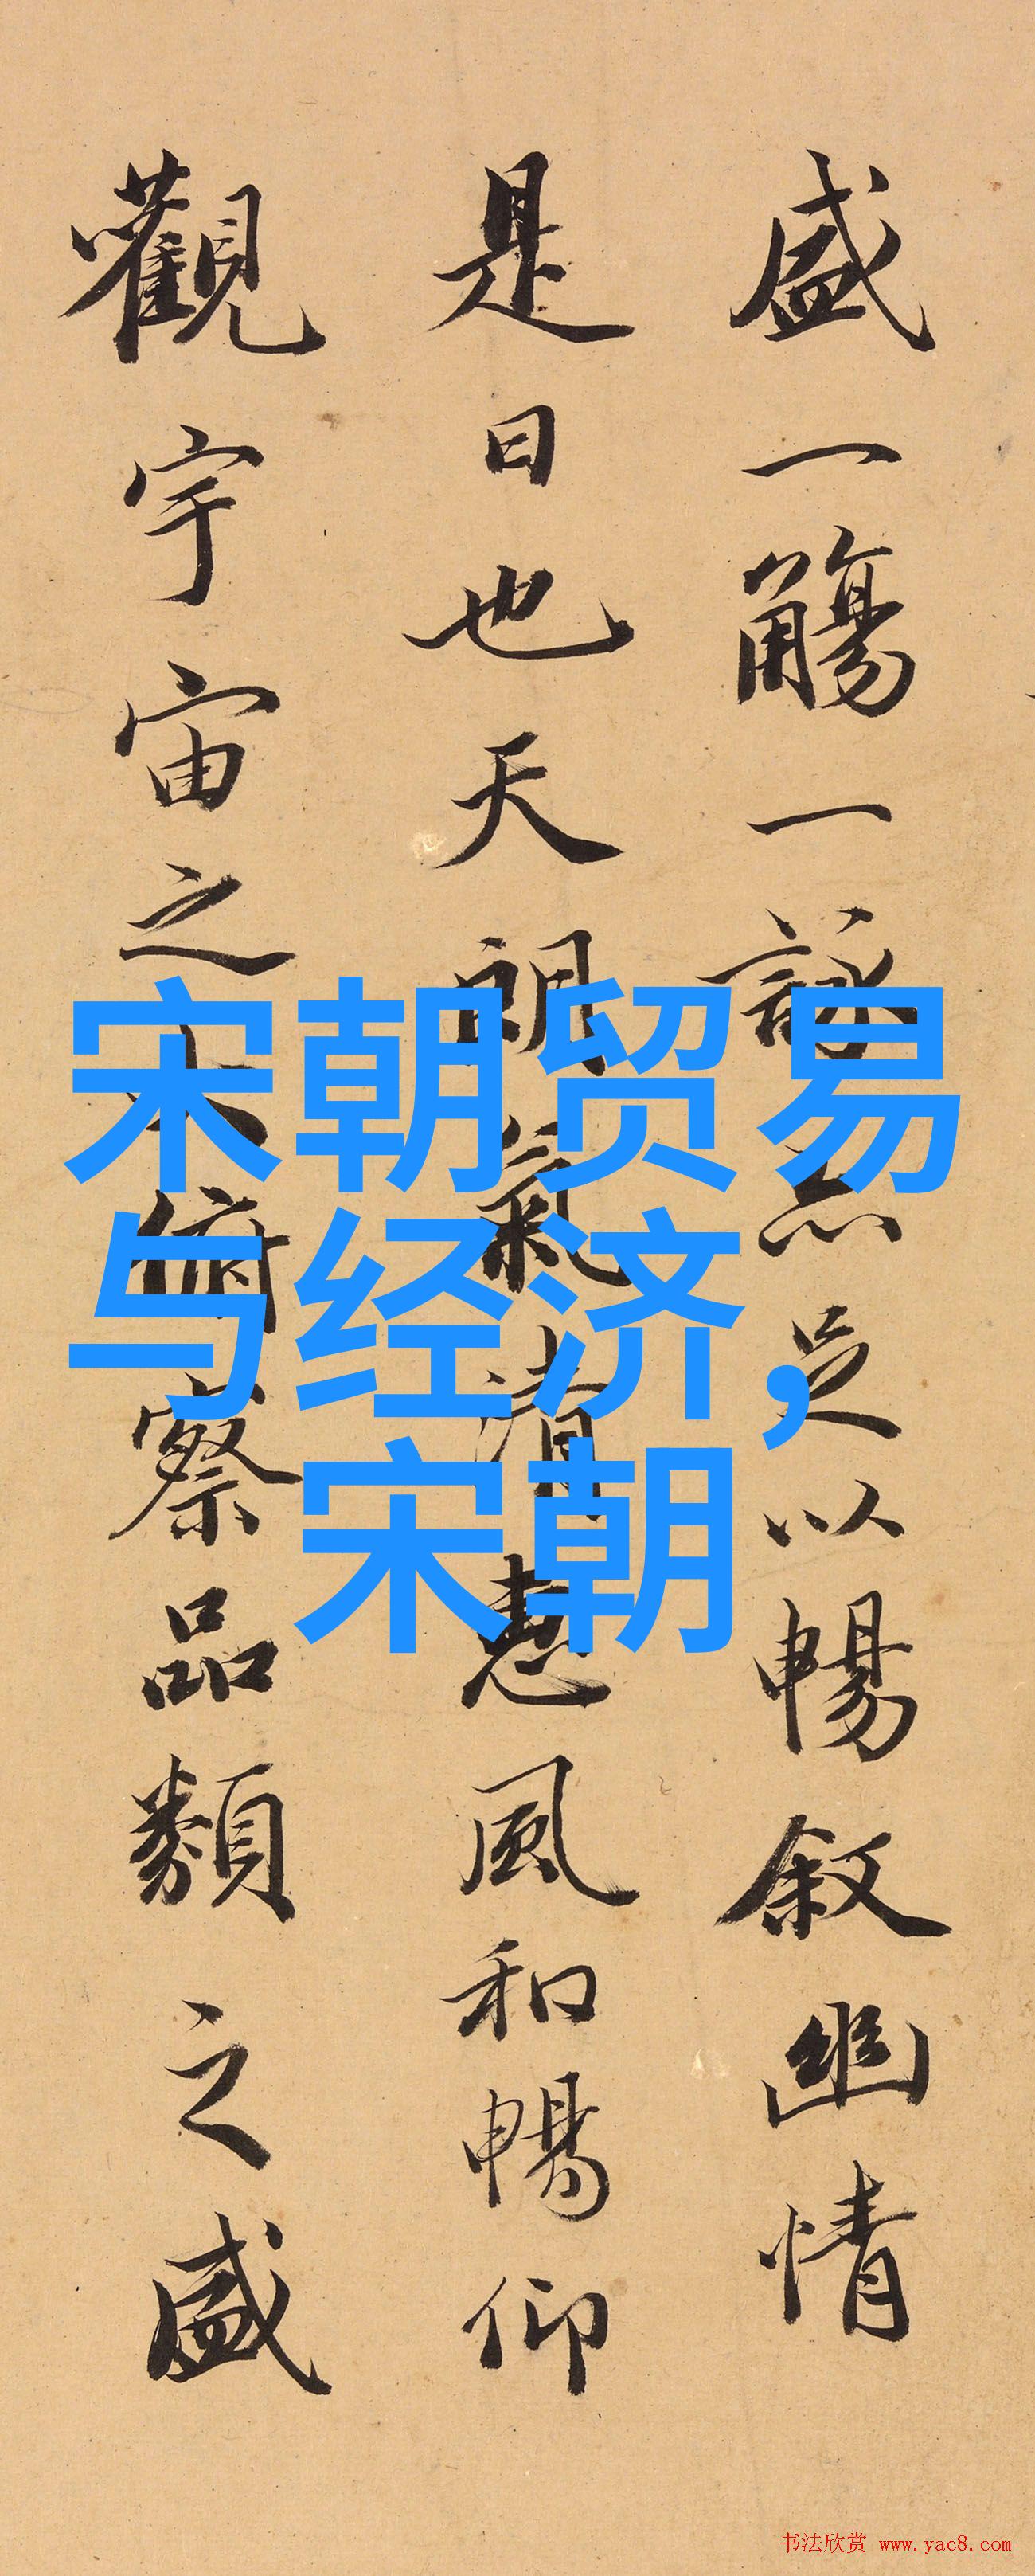 盛一觴一詠亦足以暢叙幽情
是日也天朗氣清惠風和暢仰
觀宇宙之大俯察品類之盛
宋朝贸易
与经济，
宋朝
书法欣赏 www.yac8.com